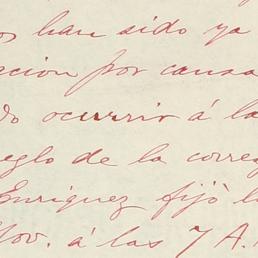 os han sido ya
cion por causa
do ocurrir á la
eglo de la corre
Enriquez fijó l
Nov. á las 7 A.